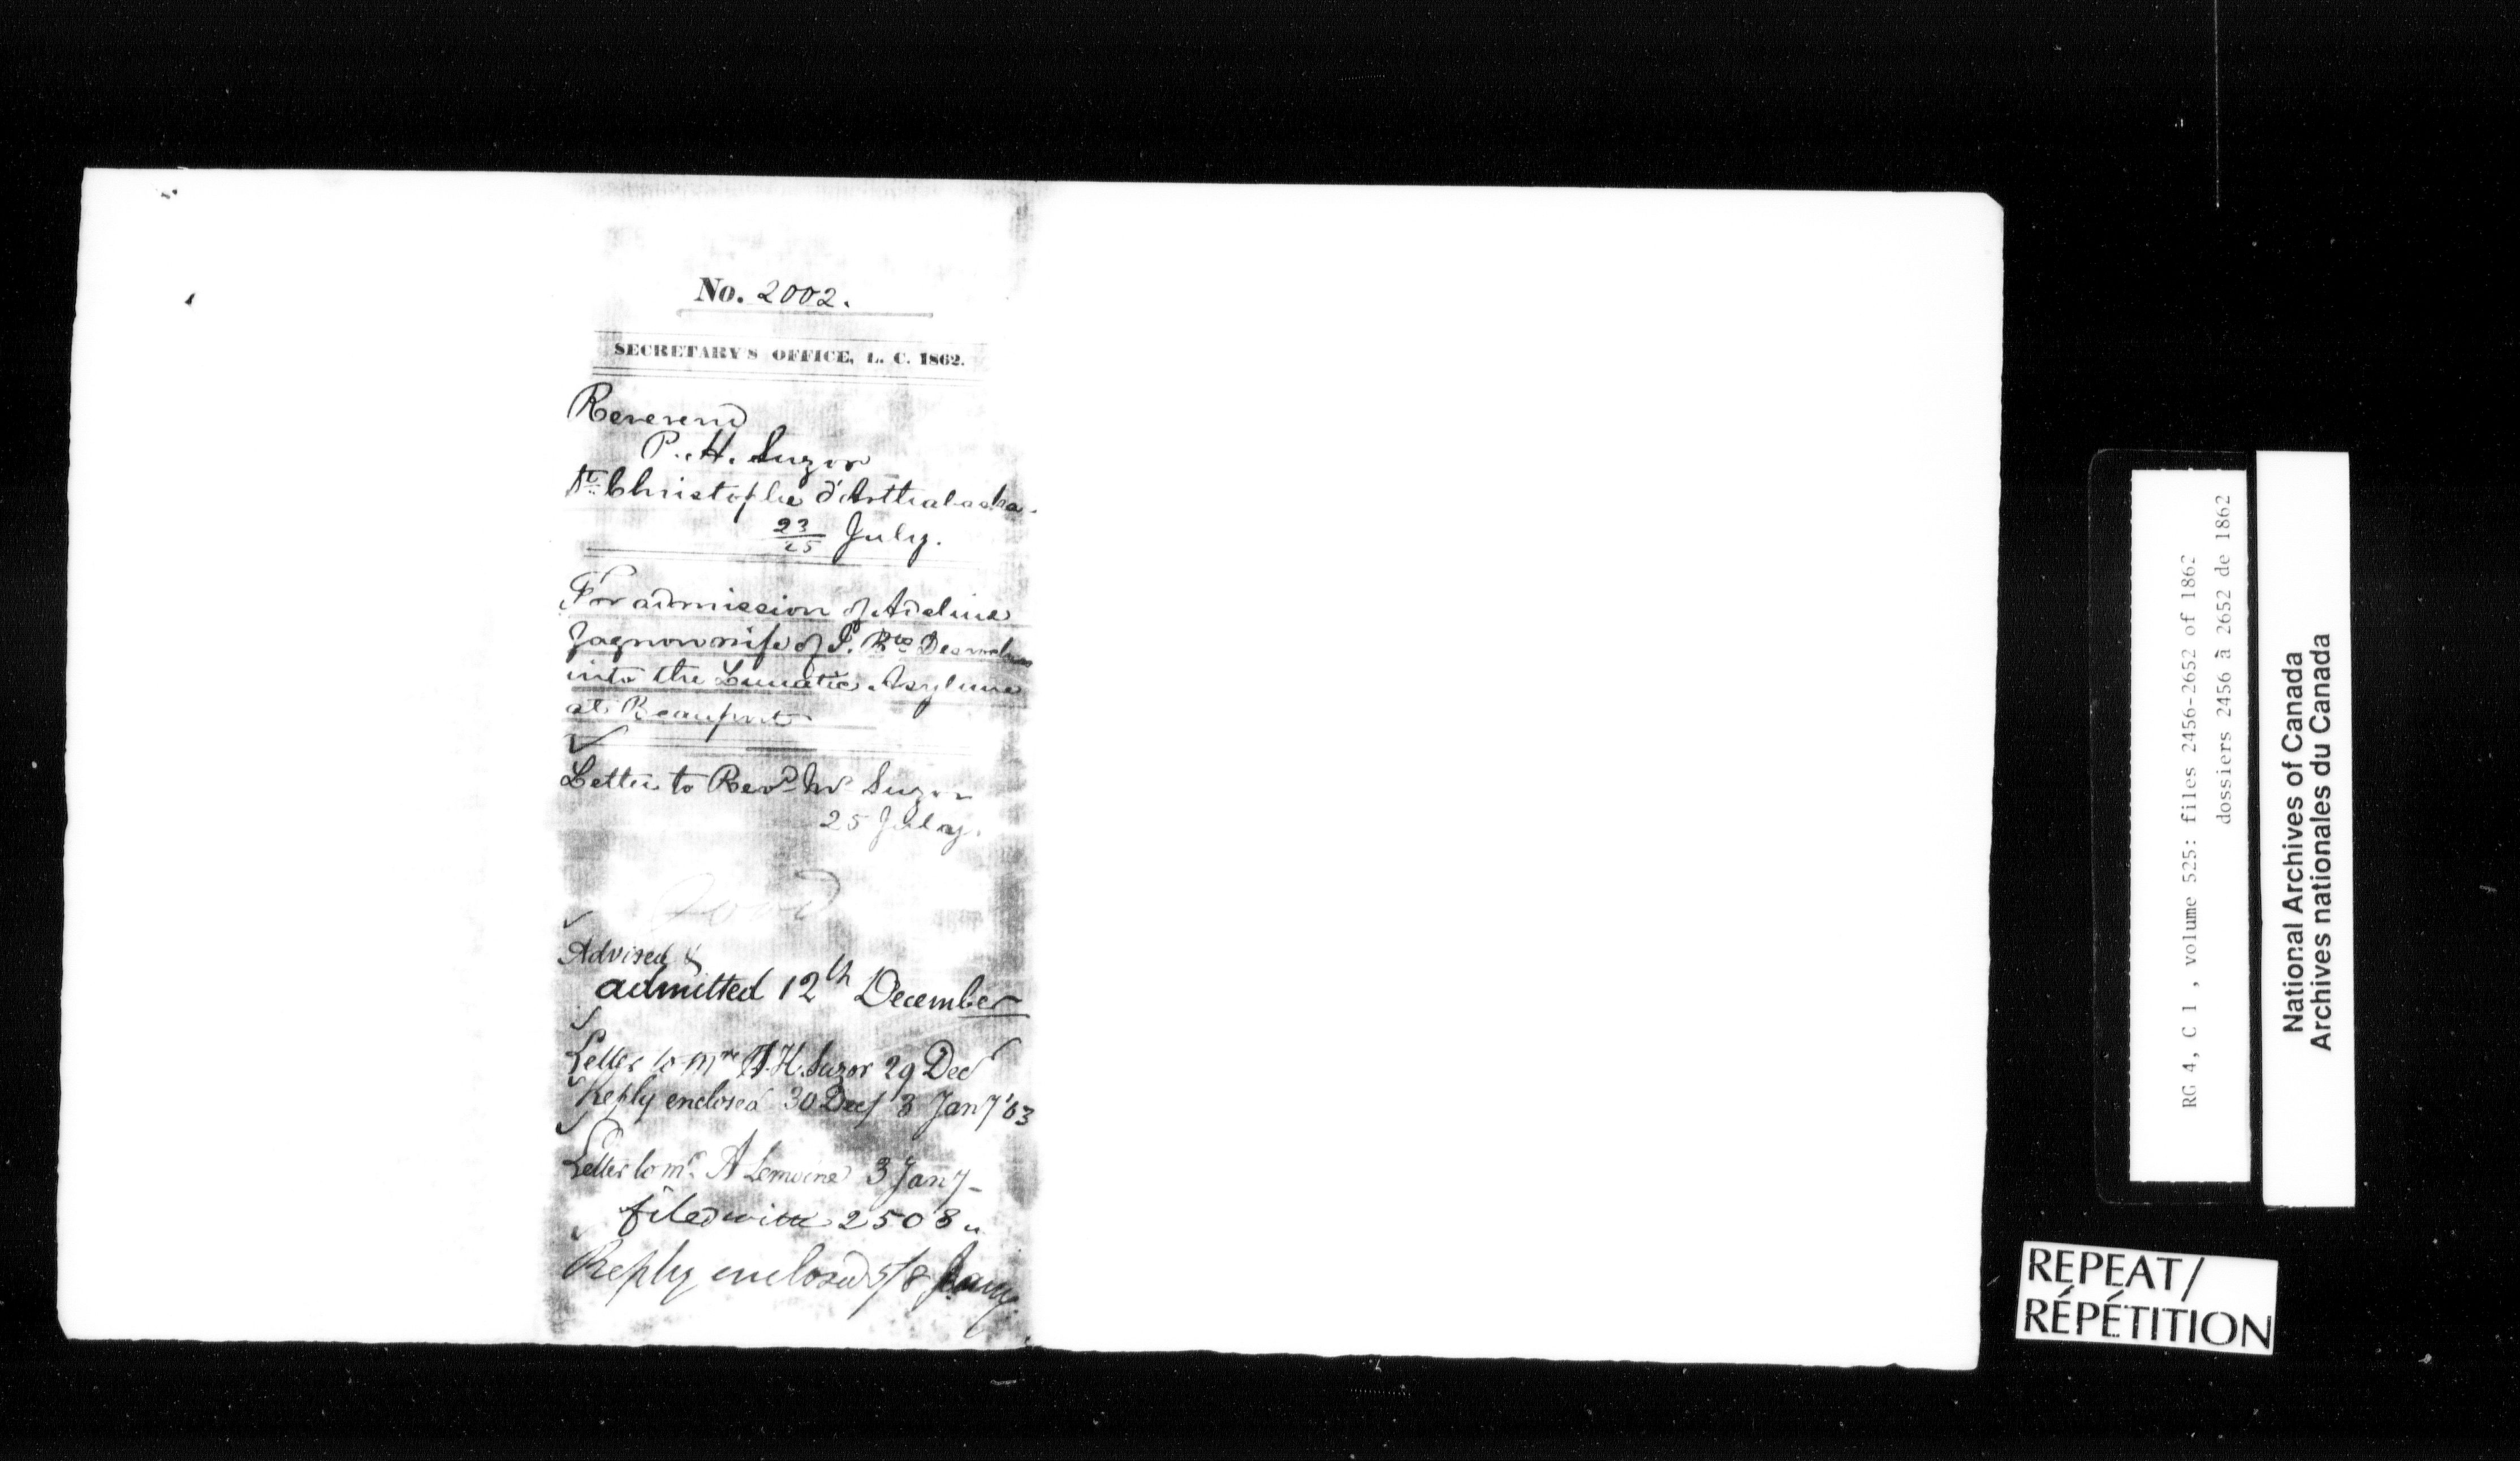 No. 2002.
SECRETARY'S OFFICE, L. C. 1862.
Reverend
P. H. Suzor
St. Christophe d'Arthabaska.
23/25 July.
For admission of Adeline
wife of J. Bte
into the Lunatic Asylum
at Beauport
Letter to Revd. Mr. Suzor
25 July.
Advised &
admitted 12th December
Letter to Mre P. H. Suzor 29 Dec
Reply enclosed 30 Dec/ 3 Jany '63
Letter to Mr. A Lemoine 3 Jany
filed with 2508
Reply enclosed 5/8 Jany.
RG 4, C 1 , volume 525: files 2456-2652 of 1862
dossiers 2456 à 2652 de 1862
National Archives of Canada
Archives nationales du Canada
REPEAT/
RÉPÉTITION